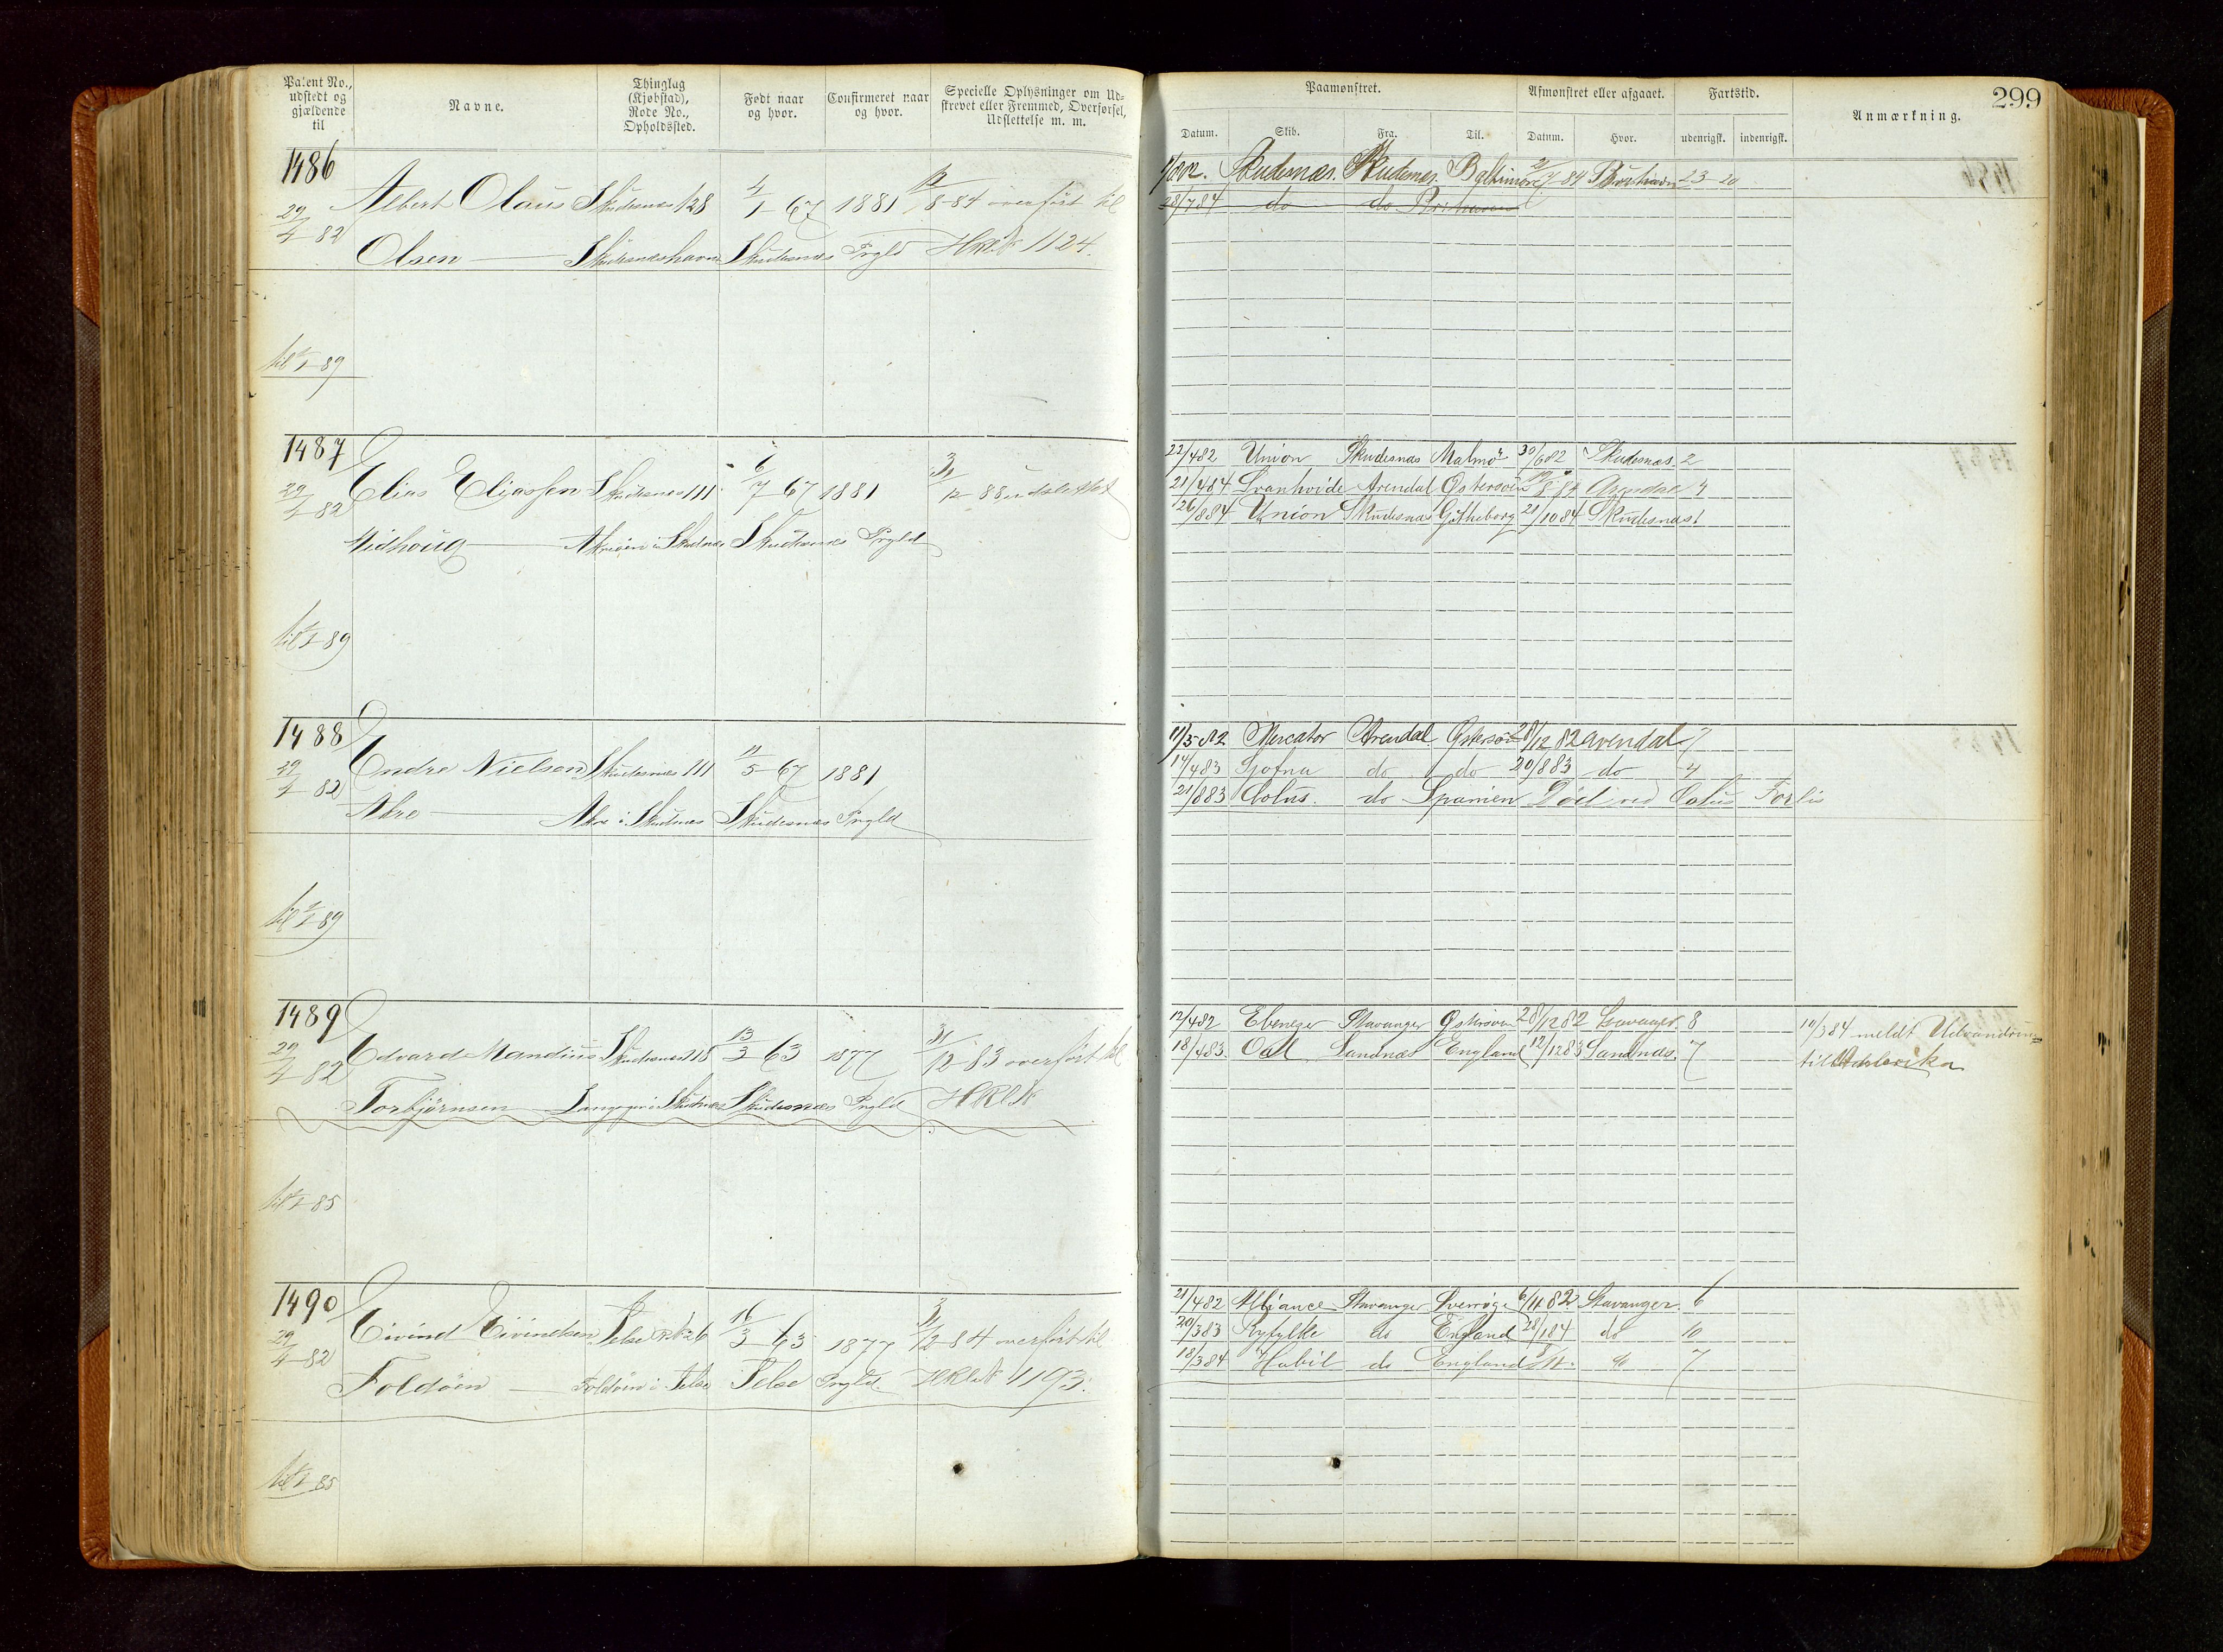 Patent No., udstedt og gjældende til
Navne.
Thinglag (Kjøbstad), Rode No., Opholdssted.
Født naar og hvor.
Confirmeret naar og hvor.
Specielle Oplysninger om Udskrevet eller Fremmed, Overførsel, Udslettelse m. m.
Paamønstret.
Afmønstret eller afgaaet.
Fartstid.
Anmærkning.
299
Datum. Skib. Fra. Til. Datum. Hvor. udenrigsk. indenrigsk.
1486
Albert Olaus Skudesnæs 128 4/1 67 1881 8-84 overført til
29/4 82
Olsen Skudesnæshavn Skudesnæs Prgld HRL No 1124.
til 1/1 89
Skudesnæs. Skudesnæs. Baltimore 84 23-20
28/7 84 do do
1487
Elias Eliassen Skudesnæs 111 6/7 67 1881 31/12 88 udslettet
29/4 82
Midhoug i Skudnæs Skudesnæs Prgld
til 1/1 89
22/4 82 Union Skudesnæs Malmö 30/6 82 Skudesnæs 2
21/4 84 Svanhvide Arendal Østersøen 8 84 Arendal 4
26/8 84 Union Skudesnæs Gøtheborg 21/10 84 Skudesnæs 1
1488
Endre Nielsen Skudesnæs 111 5 67 1881
29/4 82
Akre Akre i Skudnæs Skudesnæs Prgld
til 1/1 89
11/5 82 Mercator Arendal Østersøe 21/12 82 Arendal 7
14/4 83 do do 20/8 83 do 4
21/8 83 do Spanien Død ved Forlis
1489
Edvard Mandius Skudesnæs 118 13/3 63 1877 31/12 83 overført til
29/4 82
Torbjørnsen i Skudnæs Skudesnæs Prgld HRL No
til 1/1 85
12/4 82 Ebenezer Stavanger Østersøen 28/12 82 Stavanger 8
10/3 84 meldt Udvandring
18/4 83. Sandnæs England 12/12 83 Sandnæs. 7
til Amerika
1490
Eivind Eivindsen Jelse R No 26 16/3 63 1877 31/12 84 overført til
29/4 82
Foldöen Foldöen i Jelse Jelse Prgld. HRL No 1193.
til 1/1 85
21/4 82 Alliance Stavanger Sverrige 6/11 82 Stavanger. 6
20/3 83 Ryfylke do England 28/1 84 do 10
18/3 84 Habil do England do 7